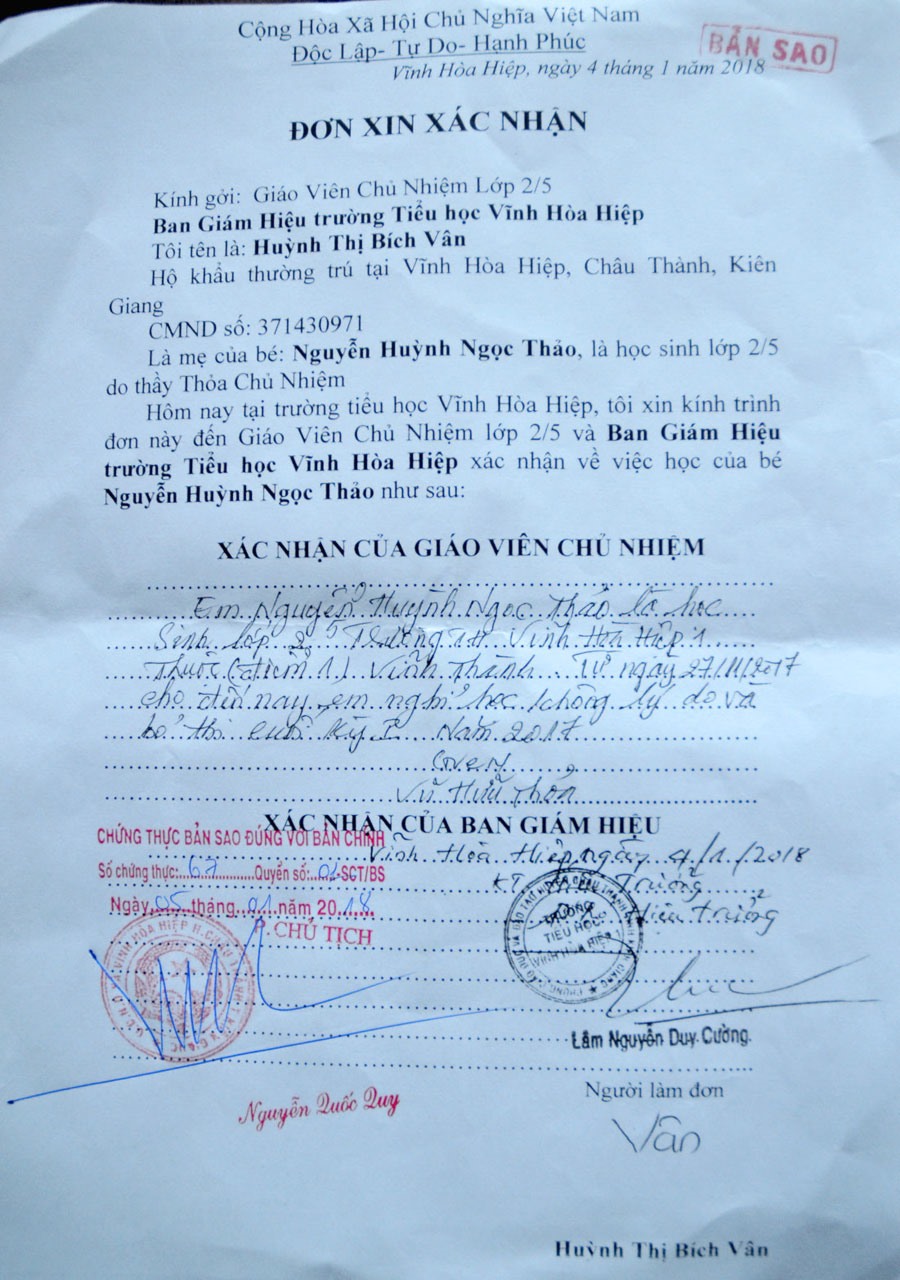 Cộng Hòa Xã Hội Chủ Nghĩa Việt Nam
Độc Lập- Tự Do- Hạnh Phúc
BẢN SAO
Vĩnh Hòa Hiệp, ngày 4 tháng 1 năm 2018
ĐƠN XIN XÁC NHẬN
Kính gởi: Giáo Viên Chủ Nhiệm Lớp 2/5
Ban Giám Hiệu trường Tiểu học Vĩnh Hòa Hiệp
Tôi tên là: Huỳnh Thị Bích Vân
Hộ khẩu thường trú tại Vĩnh Hòa Hiệp, Châu Thành, Kiên
Giang
CMND số: 371430971
Là mẹ của bé: Nguyễn Huỳnh Ngọc Thảo, là học sinh lớp 2/5
do thầy Thỏa Chủ Nhiệm
Hôm nay tại trường tiểu học Vĩnh Hòa Hiệp, tôi xin kính trình
đơn này đến Giáo Viên Chủ Nhiệm lớp 2/5 và Ban Giám Hiệu
trường Tiểu học Vĩnh Hòa Hiệp xác nhận về việc học của bé
Nguyễn Huỳnh Ngọc Thảo như sau:
XÁC NHẬN CỦA GIÁO VIÊN CHỦ NHIỆM
Em Nguyễn Huỳnh Ngọc Thảo là học
Sinh lớp 2/5 Trường TH Vĩnh Hòa Hiệp 1
Thuộc (điểm 1) Vĩnh Thành. Từ ngày 27/11/2017
cho đến nay em nghỉ học không lý do và
bỏ thi cuối kỳ I Năm 2017
Vũ Hữu Thỏa
XÁC NHẬN CỦA BAN GIÁM HIỆU
CHỨNG THỰC BẢN SAO ĐÚNG VỚI BẢN CHÍNH
Vĩnh Hòa Hiệp, ngày 4/1/2018
Số chứng thực: 67 Quyển số: 01-SCT/BS
KT. Hiệu Trưởng
Ngày 05 tháng 01 năm 2018
Hiệu trưởng
P. CHỦ TỊCH
TRƯỜNG
TIỂU HỌC
VĨNH HÒA HIỆP 1
Lâm Nguyễn Duy Cường
Người làm đơn
Nguyễn Quốc Quy
Vân
Huỳnh Thị Bích Vân